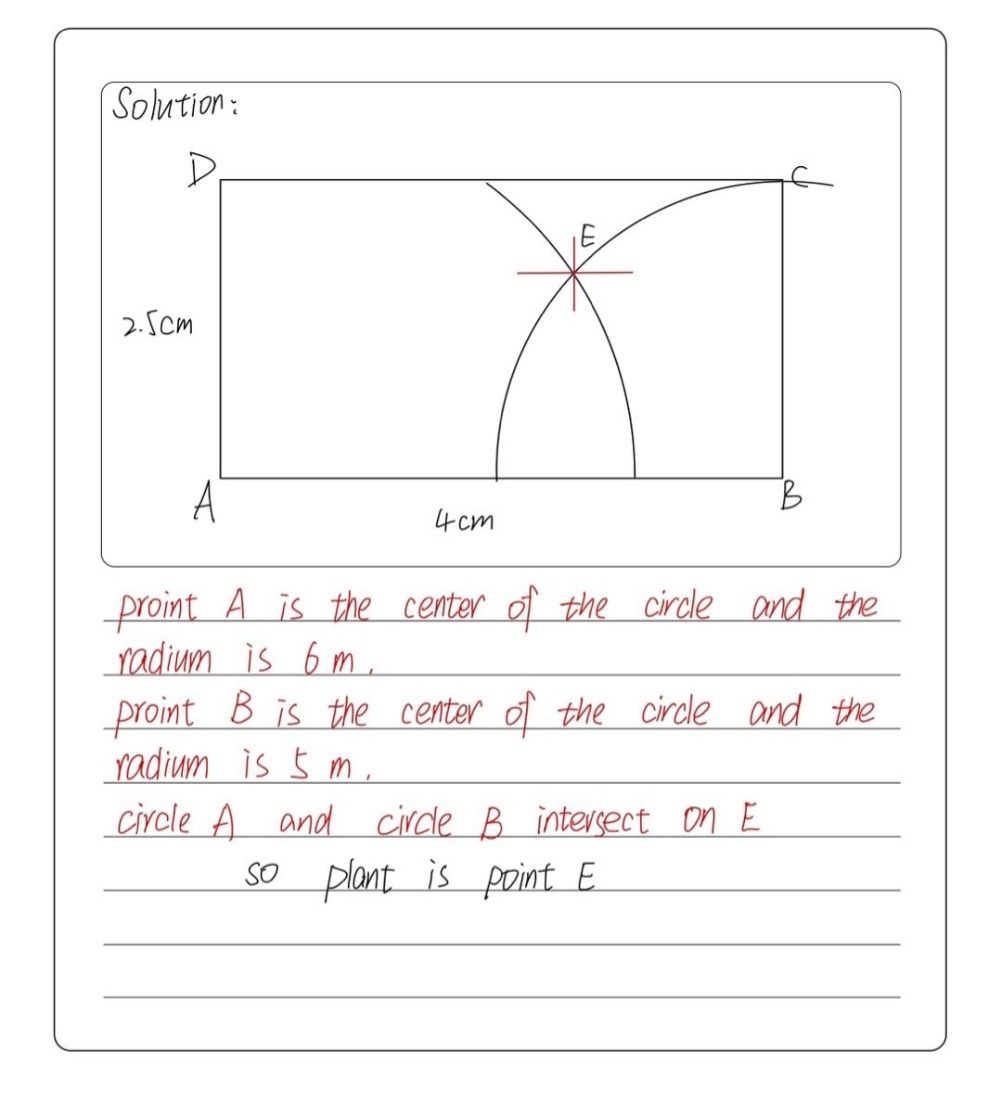 Solution:
D
C
E
2.5cm
A
B
4cm
proint A is the center of the circle and the
radium is 6 m.
proint B is the center of the circle and the
radium is 5 m.
circle A and circle B intersect on E
so plant is point E